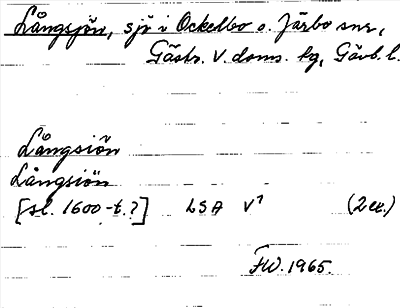 Långsjön, sjö i Ockelbo o. Järbo snr,
Gästr. V. doms. hg, Gävb. l.
Långsiön
Långsiön
[sl. 1600-t.?] LSA V1 (2 ex.)
FW. 1965.